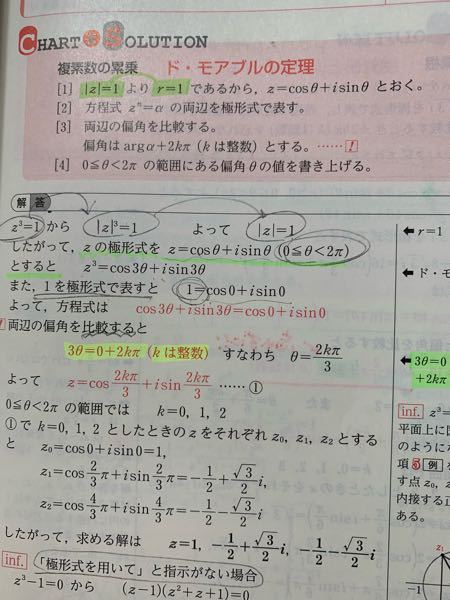 CHART & SOLUTION
複素数の累乗 ド・モアブルの定理
[1] |z|=1 より r=1 であるから，z=cosθ+isinθ とおく。
[2] 方程式 zⁿ=α の両辺を極形式で表す。
[3] 両辺の偏角を比較する。
偏角は argα+2kπ (k は整数) とする。……!
[4] 0≦θ<2π の範囲にある偏角 θ の値を書き上げる。
解答
z³=1 から |z|³=1 よって |z|=1
←r=1
したがって，z の極形式を z=cosθ+isinθ (0≦θ<2π)
とすると z³=cos3θ+isin3θ
←ド・モ
また，1 を極形式で表すと 1=cos0+isin0
よって，方程式は cos3θ+isin3θ=cos0+isin0
! 両辺の偏角を比較すると
3θ=0+2kπ (k は整数) すなわち θ=2kπ/3
←3θ=0
+2kπ
よって z=cos 2kπ/3 +isin 2kπ/3 ……①
0≦θ<2π の範囲では k=0, 1, 2
①で k=0, 1, 2 としたときの z をそれぞれ z₀, z₁, z₂ とする
と z₀=cos0+isin0=1,
z₁=cos 2/3 π+isin 2/3 π=−1/2+√3/2 i,
z₂=cos 4/3 π+isin 4/3 π=−1/2−√3/2 i
したがって，求める解は z=1, −1/2+√3/2 i, −1/2−√3/2 i
inf. 「極形式を用いて」と指示がない場合
z³−1=0 から (z−1)(z²+z+1)=0
inf. z³=
平面上に図
のように
項5例
す点 z₀, z
内接する正
ある。
z₁
−1